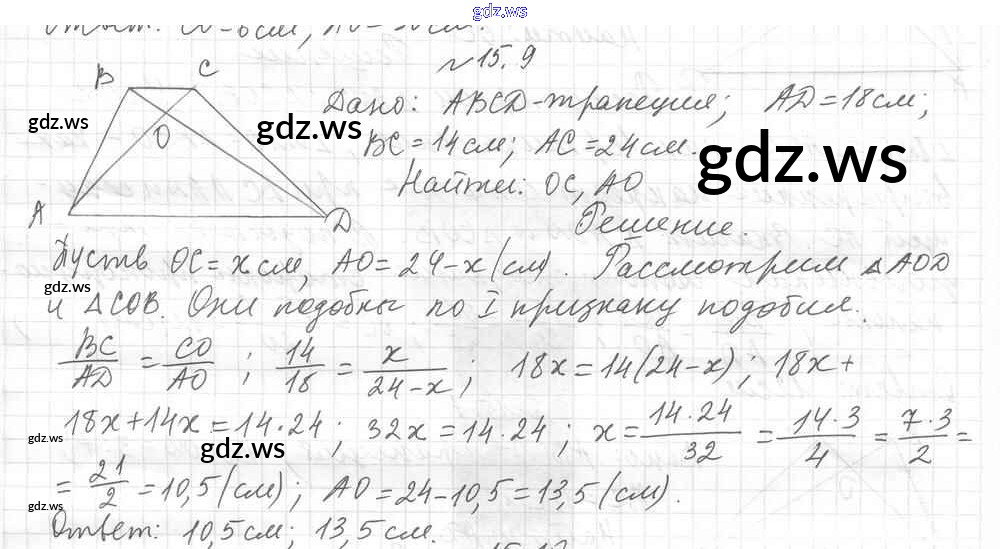 gdz.ws
Ответ: OC-6см, AO-
№15.9
B C
Дано: ABCD-трапеция; AD=18см;
gdz.ws
gdz.ws
O
BC=14см; AC=24см.
gdz.ws
Найти: OC, AO
A D
Решение.
Пусть OC=x см, AO=24-x(см). Рассмотрим △AOD
gdz.ws
и △COB. Они подобны по I признаку подобия.
BC/AD = CO/AO; 14/18 = x/24-x; 18x=14(24-x); 18x+
18x+14x=14·24; 32x=14·24; x=14·24/32 = 14·3/4 = 7·3/2 =
gdz.ws
gdz.ws
= 21/2 =10,5(см); AO=24-10,5=13,5(см).
gdz.ws
Ответ: 10,5см; 13,5см.